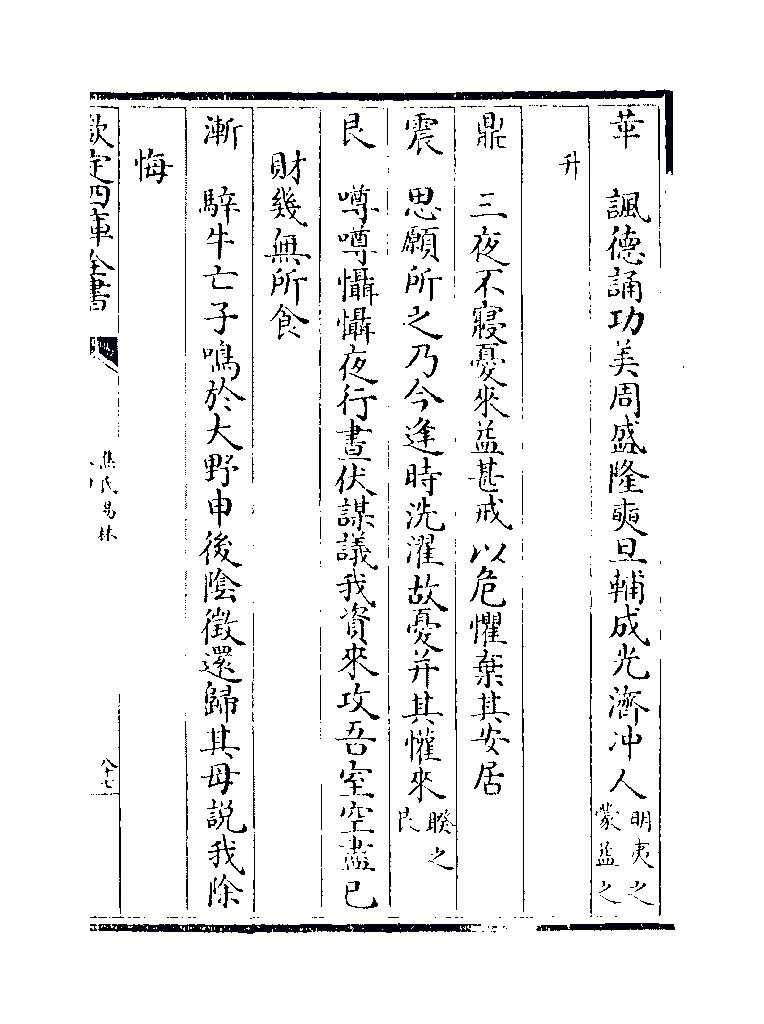 革　諷德誦功美周盛隆奭旦輔成光濟冲人明夷之蒙益之
升
鼎　三夜不寢憂來益甚戒以危懼棄其安居
震　思願所之乃今逢時洗濯故憂并其懽來睽之艮
艮　噂噂懾懾夜行晝伏謀議我資來攻吾室空盡已
財幾無所食
漸　騂牛亡子鳴於大野申後陰徵還歸其母説我除
悔
欽定四庫全書
焦氏易林
八十七